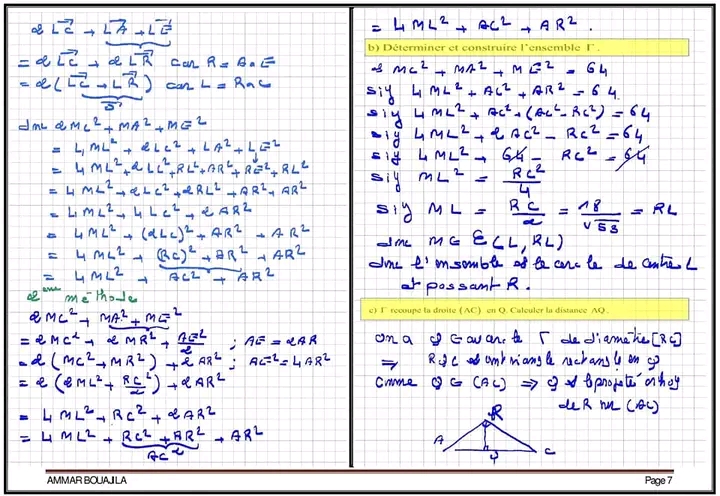 2 LC + LA + LE
= 2 LC + 2 LR car R = A * E
= 2 ( LC + LR ) car L = R * C
0
donc 2MC² + MA² + ME²
= 4 ML² + 2LC² + LA² + LE²
= 4 ML² + 2LC² + RL² + AR² + RE² + RL²
= 4 ML² + 2LC² + 2RL² + AR² + AR²
= 4 ML² + 4LC² + 2AR²
= 4 ML² + (2LC)² + AR² + AR²
= 4 ML² + (RC)² + AR² + AR²
= 4 ML² + AC² + AR²
2ème méthode
2MC² + MA² + ME²
= 2MC² + 2MR² + AE²/2 ; AE = 2AR
= 2 ( MC² + MR² ) + 2AR² ; AE² = 4AR²
= 2 ( 2ML² + RC²/2 ) + 2AR²
= 4 ML² + RC² + 2AR²
= 4 ML² + RC² + AR² + AR²
AC²
= 4 ML² + AC² + AR².
b) Déterminer et construire l'ensemble Γ.
2 MC² + MA² + ME² = 64
sig 4 ML² + AC² + AR² = 64
sig 4 ML² + AC² + (AC² - RC²) = 64
sig 4 ML² + 2AC² - RC² = 64
sig 4 ML² + 64 - RC² = 64
sig ML² = RC²/4
sig ML = RC/2 = 18/√53 = RL
donc M ∈ C(L, RL)
donc l'ensemble est le cercle de centre L
et passant R.
c) Γ recoupe la droite (AC) en Q. Calculer la distance AQ.
On a Q ∈ au cercle Γ de diamètre [RC]
⇒ RQC est un triangle rectangle en Q
Comme Q ∈ (AC) ⇒ Q est le projeté orthog
de R sur (AC)
R
A Q C
AMMAR BOUAJILA Page 7